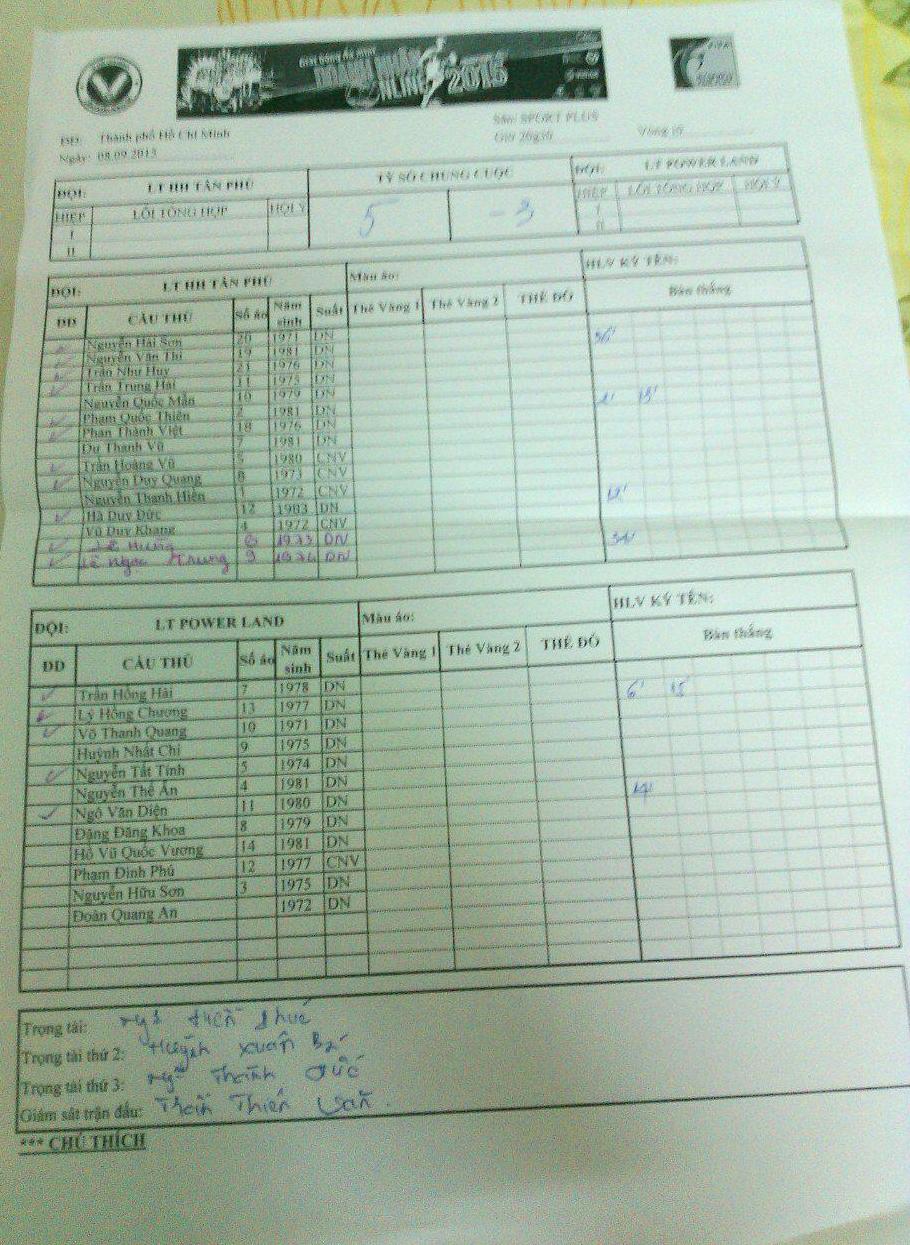 DOANH NHÂN
ONLINE 2013
DD: Thành phố Hồ Chí Minh
Sân: SPORT PLUS
Ngày: 08.09.2013
Giờ 20g30
ĐỘI: LT HH TÂN PHÚ TỶ SỐ CHUNG CUỘC ĐỘI: LT POWER LAND
HIỆP LỖI TỔNG HỢP HỘI Ý 5 3 HIỆP LỖI TỔNG HỢP HỘI Ý
I I
II II
ĐỘI: LT HH TÂN PHÚ Màu áo: HLV KÝ TÊN:
DD CẦU THỦ Số áo Năm sinh Suất Thẻ Vàng 1 Thẻ Vàng 2 THẺ ĐỎ Bàn thắng
Nguyễn Hải Sơn 20 1971 DN
Nguyễn Văn Thi 19 1981 DN
Trần Như Huy 21 1976 DN
Trần Trung Hải 11 1975 DN
Nguyễn Quốc Mẫn 10 1979 DN 15'
Phạm Quốc Thiên 2 1981 DN
Phan Thành Việt 18 1976 DN
Dư Thanh Vũ 7 1981 DN
Trần Hoàng Vũ 5 1980 CNV
Nguyễn Duy Quang 8 1973 CNV
Nguyễn Thanh Hiền 1 1972 CNV
Hà Duy Đức 12 1983 DN
Vũ Duy Khang 4 1972 CNV
Lê Hưng 6 1973 DN
Lê Ngọc Trung 9 1974 DN
ĐỘI: LT POWER LAND Màu áo: HLV KÝ TÊN:
DD CẦU THỦ Số áo Năm sinh Suất Thẻ Vàng 1 Thẻ Vàng 2 THẺ ĐỎ Bàn thắng
Trần Hồng Hải 7 1978 DN 6' 15'
Lý Hồng Chương 13 1977 DN
Võ Thanh Quang 10 1971 DN
Huỳnh Nhất Chi 9 1975 DN
Nguyễn Tất Tính 5 1974 DN
Nguyễn Thế Ân 4 1981 DN
Ngô Văn Diện 11 1980 DN
Đặng Đăng Khoa 8 1979 DN
Hồ Vũ Quốc Vương 14 1981 DN
Phạm Đình Phú 12 1977 CNV
Nguyễn Hữu Sơn 3 1975 DN
Đoàn Quang An 1972 DN
Trọng tài:
Trọng tài thứ 2: Huỳnh Xuân
Trọng tài thứ 3: Thành Đức
Giám sát trận đấu: Thiên Văn.
*** CHÚ THÍCH